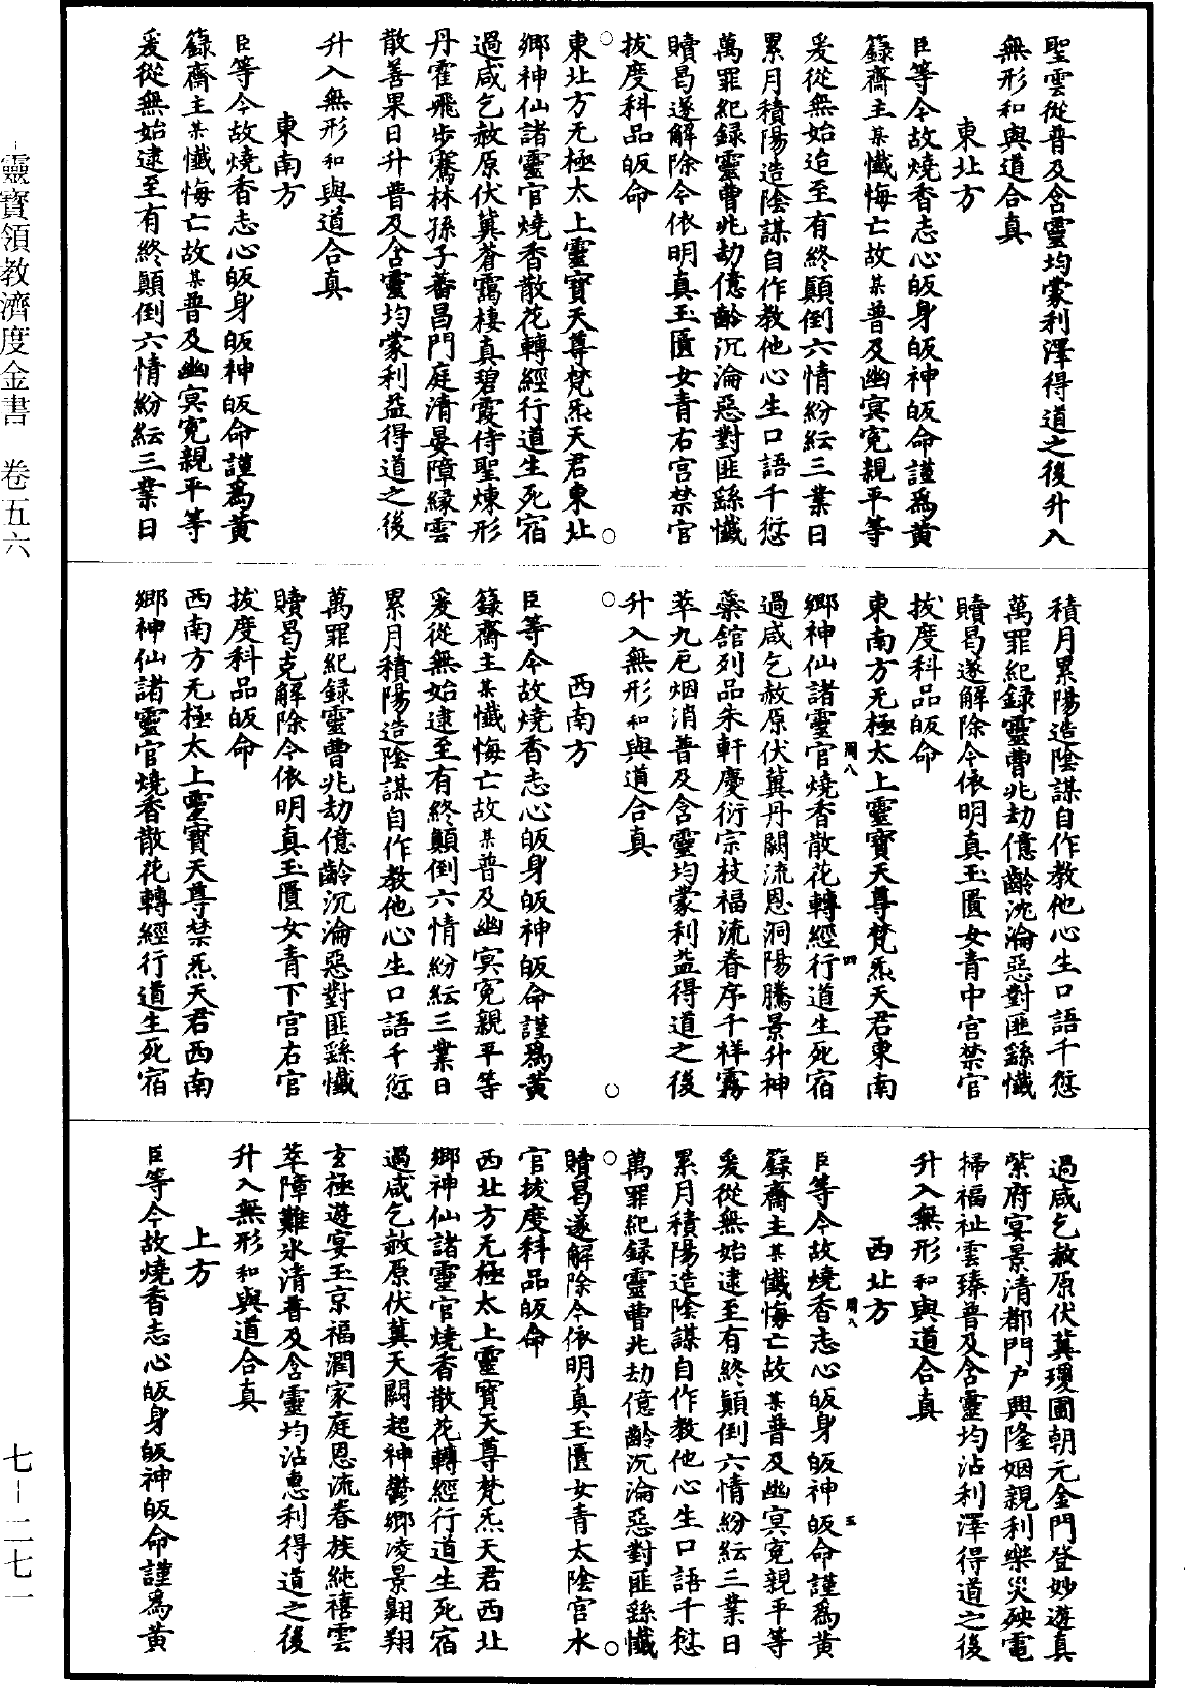 聖雲從普及含靈均蒙利澤得道之後升入
無形和與道合真
東北方
臣等今故燒香志心皈身皈神皈命謹為黃
籙齋主某懺悔亡故某普及幽冥寃親平等
爰從無始迨至有終顛倒六情紛紜三業日
累月積陽造陰謀自作教他心生口語千愆
萬罪紀録靈曹兆劫億齡沉淪惡對匪繇懺
贖曷遂解除今依明真玉匱女青右宫禁官
拔度科品皈命
東北方无極太上靈寶天尊梵炁天君東北
鄉神仙諸靈官燒香散花轉經行道生死宿
過咸乞赦原伏冀蒼靄棲真碧霞侍聖煉形
丹霍飛步騫林孫子蕃昌門庭清晏障緣雲
散善果日升普及含靈均蒙利益得道之後
升入無形和與道合真
東南方
臣等今故燒香志心皈身皈神皈命謹為黃
籙齋主某懺悔亡故某普及幽冥寃親平等
爰從無始逮至有終顛倒六情紛紜三業日
積月累陽造陰謀自作教他心生口語千愆
萬罪紀録靈曹兆劫億齡沈淪惡對匪繇懺
贖曷遂解除今依明真玉匱女青中宫禁官
拔度科品皈命
東南方无極太上靈寶天尊梵炁天君東南
鄉神仙諸靈官燒香散花轉經行道生死宿
過咸乞赦原伏冀丹闕流恩洞陽騰景升神
蘂館列品朱軒慶衍宗枝福流春序千祥霧
萃九厄烟消普及含靈均蒙利益得道之後
升入無形和與道合真
西南方
臣等今故燒香志心皈身皈神皈命謹為黃
籙齋主某懺悔亡故某普及幽冥寃親平等
爰從無始逮至有終顛倒六情紛紜三業日
累月積陽造陰謀自作教他心生口語千愆
萬罪紀録靈曹兆劫億齡沉淪惡對匪繇懺
贖曷克解除今依明真玉匱女青下宫右官
拔度科品皈命
西南方无極太上靈寶天尊禁炁天君西南
鄉神仙諸靈官燒香散花轉經行道生死宿
過咸乞赦原伏冀瓊圃朝元金門登妙遊真
紫府宴景清都門户興隆姻親利樂災殃電
掃福祉雲臻普及含靈均沾利澤得道之後
升入無形和與道合真
西北方
臣等今故燒香志心皈身皈神皈命謹為黃
籙齋主某懺悔亡故某普及幽冥寃親平等
爰從無始逮至有終顛倒六情紛紜三業日
累月積陽造陰謀自作教他心生口語千愆
萬罪紀録靈曹兆劫億齡沉淪惡對匪繇懺
贖曷遂解除今依明真玉匱女青太陰官水
官拔度科品皈命
西北方无極太上靈寶天尊梵炁天君西北
鄉神仙諸靈官燒香散花轉經行道生死宿
過咸乞赦原伏冀天闕超神鬱鄉凌景翱翔
玄極遊宴玉京福潤家庭恩流眷族純禧雲
萃障難冰清普及含靈均沾惠利得道之後
升入無形和與道合真
上方
臣等今故燒香志心皈身皈神皈命謹為黃
周八
四
周八
五
靈寶領教濟度金書 卷五六
七-二七一